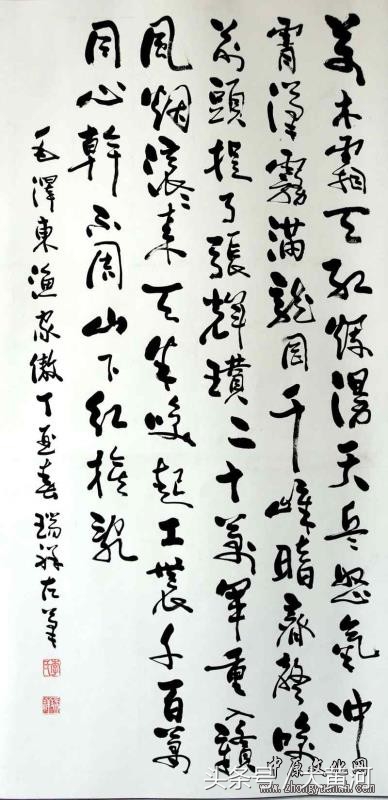 萬木霜天紅爛漫天兵怒氣沖
霄漢霧滿龍岡千嶂暗齊聲喚
前頭捉了張輝瓚二十萬軍重入贛
風烟滾滾來天半喚起工農千百萬
同心幹不周山下紅旗亂
毛澤東漁家傲丁亥春瑞祥左筆
头条号 / 大黄河
中原文化网